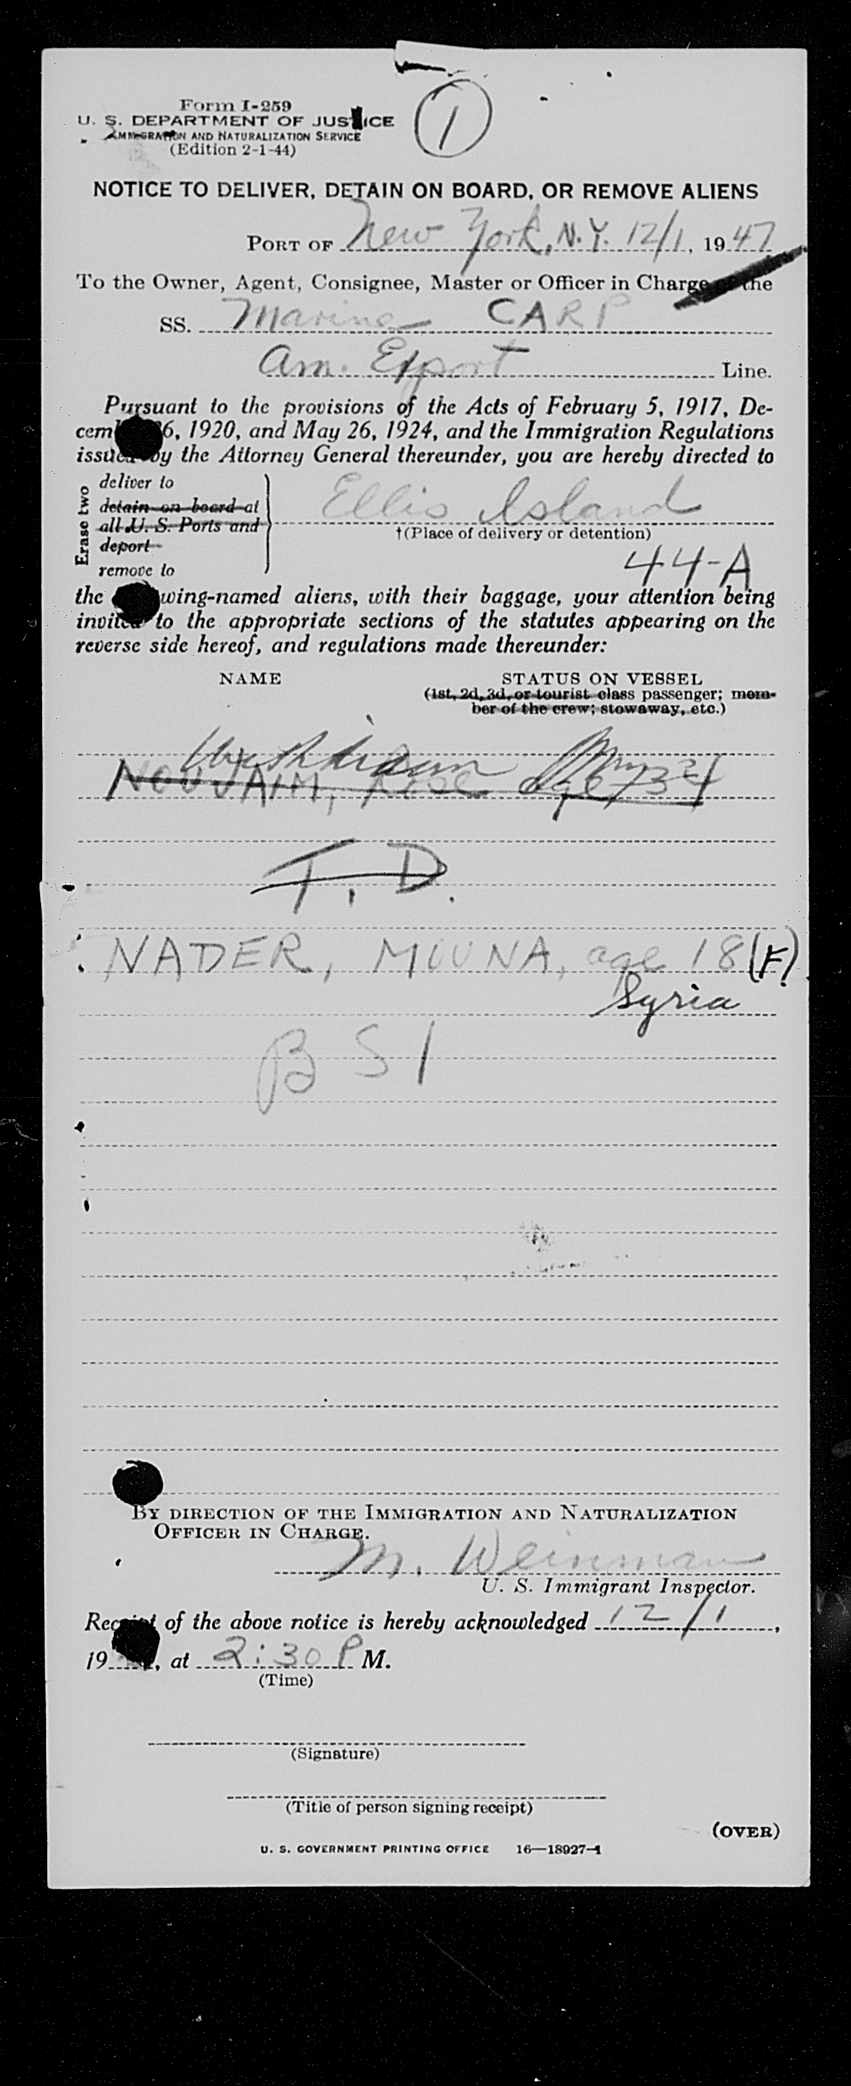 Form I-259
U. S. DEPARTMENT OF JUSTICE
IMMIGRATION AND NATURALIZATION SERVICE
(Edition 2-1-44)
1
NOTICE TO DELIVER, DETAIN ON BOARD, OR REMOVE ALIENS
PORT OF New York, N.Y. 12/1, 1947
To the Owner, Agent, Consignee, Master or Officer in Charge of the
SS. Marine CARP
Am. Export Line.
Pursuant to the provisions of the Acts of February 5, 1917, De-
cember 26, 1920, and May 26, 1924, and the Immigration Regulations
issued by the Attorney General thereunder, you are hereby directed to
Erase two
deliver to
detain on board at
all U. S. Ports and
deport
remove to
Ellis Island
†(Place of delivery or detention)
44-A
the following-named aliens, with their baggage, your attention being
invited to the appropriate sections of the statutes appearing on the
reverse side hereof, and regulations made thereunder:
NAME STATUS ON VESSEL
(1st, 2d, 3d, or tourist class passenger; mem-
ber of the crew; stowaway, etc.)
NOUJAIM, Rose age 34
T. D.
NADER, MOUNA, age 18 (F)
Syria
B S I
BY DIRECTION OF THE IMMIGRATION AND NATURALIZATION
OFFICER IN CHARGE.
M. Weinman
U. S. Immigrant Inspector.
Receipt of the above notice is hereby acknowledged 12/1,
19, at 2:30 P M.
(Time)
(Signature)
(Title of person signing receipt)
(OVER)
U. S. GOVERNMENT PRINTING OFFICE 16—18927-1